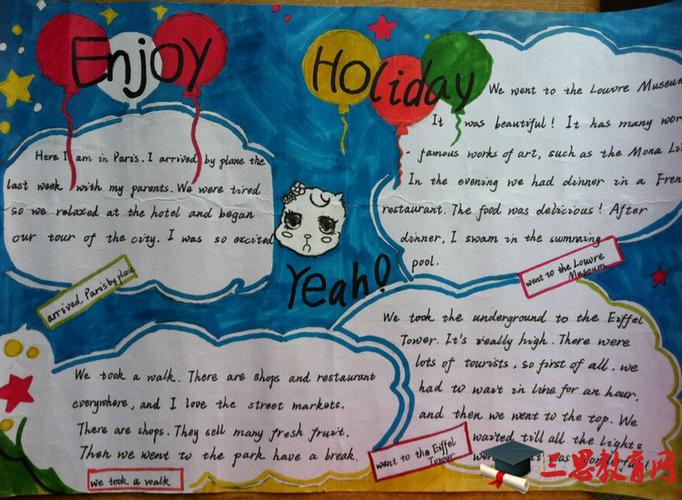 Enjoy
Holiday
Here I am in Paris. I arrived by plane the
last week with my parents. We were tired
so we relaxed at the hotel and began
our tour of the city. I was so excited
arrived Paris by plane
We went to the Louvre Museum
It was beautiful! It has many wor
- famous works of art, such as the Mona Li
In the evening we had dinner in a Fren
restaurant. The food was delicious! After
dinner, I swam in the summing
pool.
went to the Louvre
Museum
Yeah!
We took a walk. There are shops and restaurant
everywhere, and I love the street markets.
There are shops. They sell many fresh fruit.
Then we went to the park have a break.
we took a walk
We took the underground to the Eiffel
Tower. It's really high. There were
lots of tourists, so first of all, we
had to wait in line for an hour,
and then we went to the top. We
waited till all the lights
was
went to the Eiffel
Tower
三思教育网